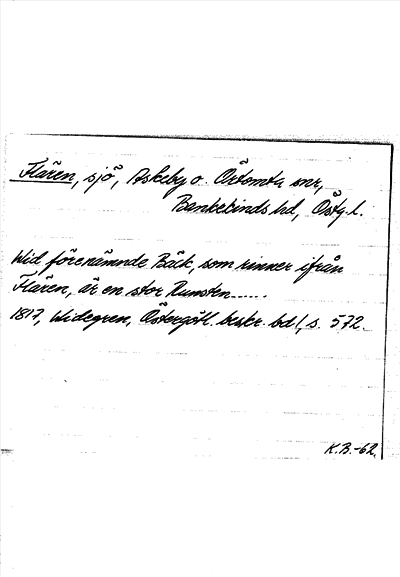 Flären, sjö, Askeby o. Örtomta snr,
Bankekinds hd, Östg.l.
Wid förenämnde Bäck, som rinner ifrån
Flären, är en stor Kunsten......
1817, Widegren, Östergötl. beskr. bd 1, s. 572.
K.B.-62